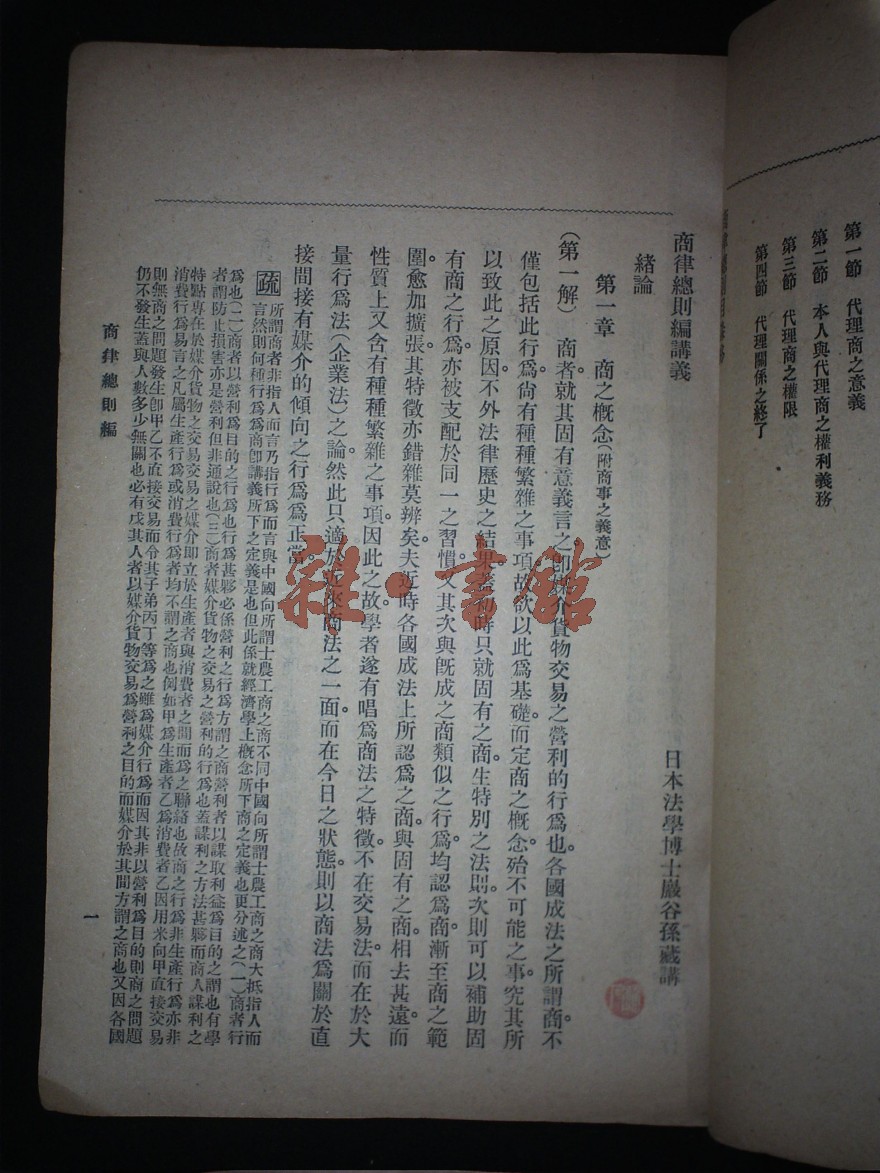 第一節　代理商之意義
第二節　本人與代理商之權利義務
第三節　代理商之權限
第四節　代理關係之終了
商律總則編講義
日本法學博士巖谷孫藏講
緒論
第一章　商之概念(附商事之義意)
(第一解)　商者。就其固有意義言之。卽媒介貨物交易之營利的行爲也。各國成法之所謂商。不
僅包括此行爲。尙有種種繁雜之事項。故欲以此爲基礎。而定商之概念。殆不可能之事。究其所
以致此之原因。不外法律歷史之結果。蓋初時只就固有之商。生特別之法則。次則可以補助固
有商之行爲。亦被支配於同一之習慣。又其次與旣成之商類似之行爲。均認爲商。漸至商之範
圍。愈加擴張。其特徵亦錯雜莫辨矣。夫近時各國成法上所認爲之商。與固有之商。相去甚遠。而
性質上又含有種種繁雜之事項。因此之故。學者遂有唱爲商法之特徵。不在交易法。而在於大
量行爲法(企業法)之論。然此只適於近來商法之一面。而在今日之狀態。則以商法爲關於直
接間接有媒介的傾向之行爲爲正當。
疏　所謂商者非指人而言乃指行爲而言與中國向所謂士農工商之商不同中國向所謂士農工商之商大抵指人而
言然則何種行爲爲商卽講義所下之定義是也但此係就經濟學上概念所下商之定義也更分述之(一)商者行
爲也(二)商者以營利爲目的之行爲也行爲甚夥必係營利之行爲方謂之商營利者以謀取利益爲目的之謂也有學
者謂防止損害亦是營利但非通說也(三)商者媒介貨物之交易之營利的行爲也蓋謀利之方法甚夥而商人謀利之
特點專在於媒介貨物之交易交易之媒介卽立於生產者與消費者之間而爲之聯絡也故商之行爲非生產行爲亦非
消費行爲易言之凡屬生產行爲或消費行爲者均不謂之商也例如甲爲生產者乙爲消費者乙因用米向甲直接交易
則無商之問題發生卽甲乙不直接交易而令其子弟丙丁等爲之雖爲媒介行爲而因其非以營利爲目的則商之問題
仍不發生蓋與人數多少無關也必有戊其人者以媒介貨物交易爲營利之目的而媒介於其間方謂之商也又因各國
商律總則編
一
雜·書館